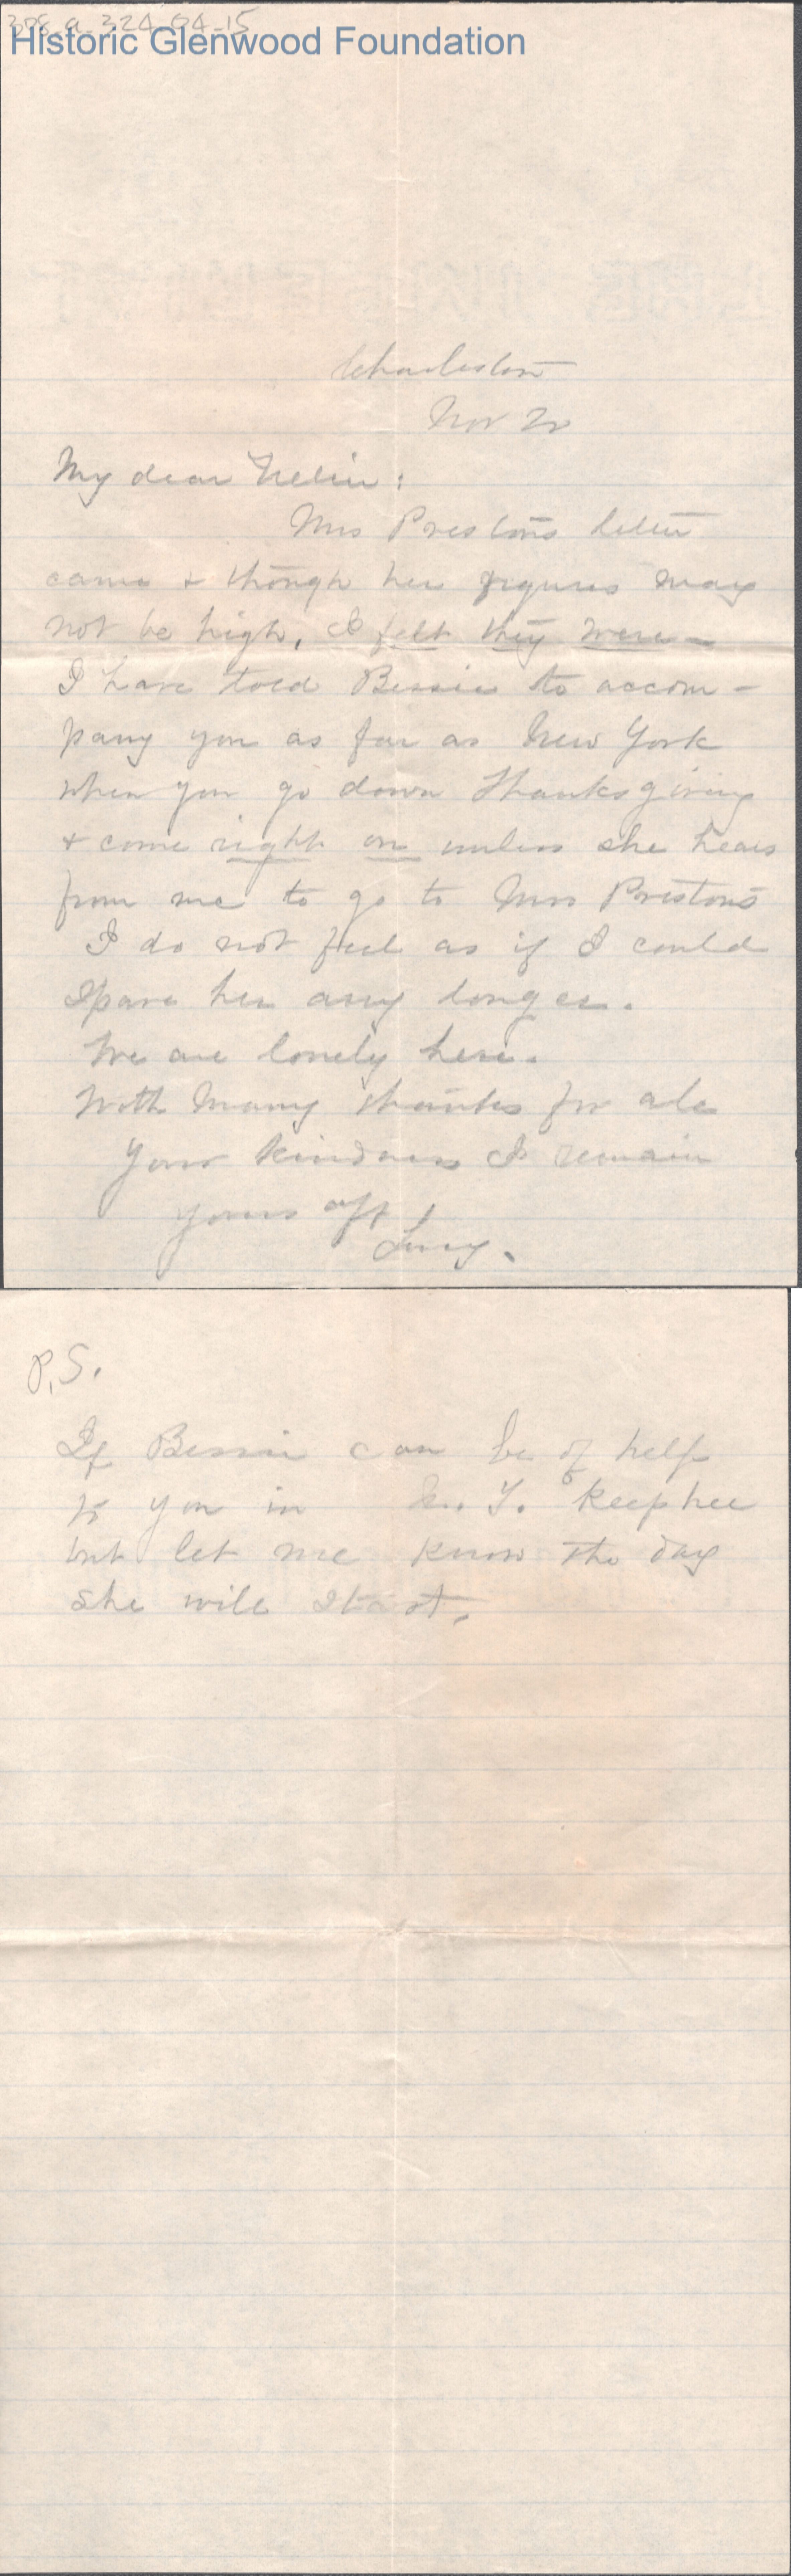 Historic Glenwood Foundation
Charleston
Nov 20
My dear Nellie:
Mrs Prestons letter
came + though her figures may
not be high, I felt they were—
I have told Bessie to accom-
pany you as far as New York
when you go down Thanksgiving
+ come right on unless she hears
from me to go to Mrs Prestons
I do not feel as if I could
spare her any longer.
We are lonely here.
With many thanks for all
your kindness I remain
yours aff
Lucy.
P.S.
If Bessie can be of help
to you in N. Y. keep her
but let me know the day
she will start.